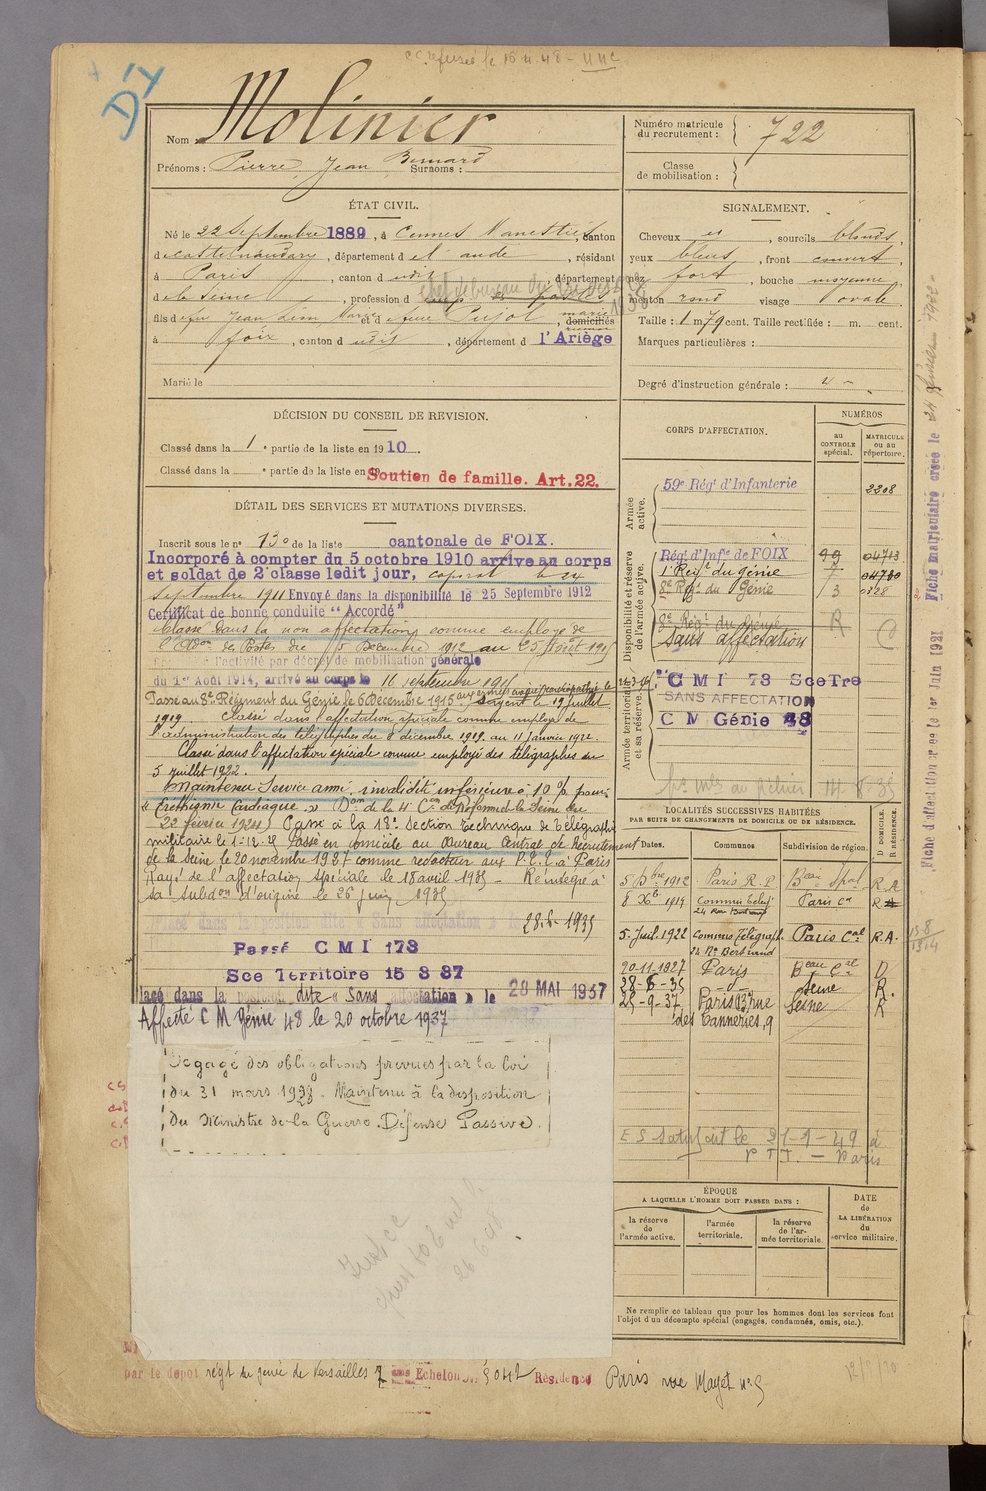 refusé le
Nom : Molinier
Prénoms : Pierre, Jean, Bernard Surnoms :
Numéro matricule du recrutement : 722
Classe de mobilisation :
ÉTAT CIVIL.
Né le 22 Septembre 1889, à Cennes Monestiés, canton
d e Castelnaudary, département d e l'aude, résidant
à Paris, canton d udit, département
d e la Seine, profession d
fils d e feu Jean Léon Marie et d e feue Pujol, domiciliés
à foix, canton d udit, département d l'Ariège
Marié le
SIGNALEMENT.
Cheveux et, sourcils blonds,
yeux bleus, front couvert,
nez fort, bouche moyenne,
menton rond visage ovale
Taille : 1 m 79 cent. Taille rectifiée : m. cent.
Marques particulières :
Degré d'instruction générale : 4
DÉCISION DU CONSEIL DE REVISION.
Classé dans la 1e partie de la liste en 1910.
Classé dans la e partie de la liste en 19
Soutien de famille. Art. 22.
DÉTAIL DES SERVICES ET MUTATIONS DIVERSES.
Inscrit sous le n° 130 de la liste cantonale de FOIX.
Incorporé à compter du 5 octobre 1910 arrivé au corps
et soldat de 2e classe ledit jour, caporal le 24
Septembre 1911 Envoyé dans la disponibilité le 25 Septembre 1912
Certificat de bonne conduite "Accordé"
Classé dans la non affectation comme employé de
l'Adon des Postes du 5 Décembre 1912 au 25 Août 1915
l'activité par décret de mobilisation générale
du 1er Août 1914, arrivé au corps le 11 septembre 1915
Passé au 8e Régiment du Génie le 6 Décembre 1915 Sergent le 19 juillet
1919. Classé dans l'affectation spéciale comme employé de
l'administration des télégraphes du 8 décembre 1919 au 11 Janvier 1922.
Classé dans l'affectation spéciale comme employé des télégraphes du
5 juillet 1922.
Maintenu Service armé, invalidité inférieure à 10 % pour
« Eréthisme Cardiaque » Don de la 4e Con de Réforme de la Seine du
22 février 1924 Passé à la 18e Section Technique de Télégraphie
militaire le Passé en domicile au Bureau Central de Recrutement
de la Seine le 20 novembre 1927 comme rédacteur aux P.T.T. à Paris
Rayé de l'affectation spéciale le 18 avril 1935 - Réintégré à
sa subdon d'origine le 26 Juin 1935
Placé dans la position dite « Sans affectation » le 28-6-1935
Passé CMI 173
Sce Territoire 15 8 37
Placé dans la position dite « Sans affectation » le 28 MAI 1937
Affecté C M Génie 48 le 20 octobre 1937
Dégagé des obligations prévues par la loi
du 31 mars 1928. Maintenu à la disposition
du Ministre de la Guerre. Défense Passive.
CORPS D'AFFECTATION.
NUMÉROS
au CONTROLE spécial.
MATRICULE ou au répertoire.
Armée active.
59e Régt d'Infanterie 2208
Disponibilité et réserve de l'armée active.
Régt d'Infie de FOIX 99 04713
1er Régt du Génie 7 04780
8e Régt du Génie 13 0128
8e Régt du Génie R
Sans affectation
Armée territoriale et sa réserve.
CMI 73 Sce Tre
SANS AFFECTATION
C M Génie 48
LOCALITÉS SUCCESSIVES HABITÉES
PAR SUITE DE CHANGEMENTS DE DOMICILE OU DE RÉSIDENCE.
Dates. Communes Subdivision de région. D DOMICILE. R RÉSIDENCE.
5 Xbre 1912 Paris R.P. Beau Spal R.A
8 Xb 1919 Commis télég. Paris Cal R
24 Rue Bertrand
5 Juil. 1922 Commis Télégraph. Paris Cal R.A.
24 R. Bertrand
20-11-1927 Paris Beau Cal D
28-6-35 -d- Seine R.
25-9-37 Paris 13e rue Seine R
des Tanneries, 9
E S satisfait le 21-9-49 à
P T T. - Paris
ÉPOQUE
A LAQUELLE L'HOMME DOIT PASSER DANS :
la réserve de l'armée active.
l'armée territoriale.
la réserve de l'armée territoriale.
DATE de LA LIBÉRATION du service militaire.
Ne remplir ce tableau que pour les hommes dont les services font
l'objet d'un décompte spécial (engagés, condamnés, omis, etc.).
par le dépot régt du génie de Versailles Echelon Résidence Paris rue Mayet n° 5
Fiche d'affectation créée le 1er Juin 1921 Fiche matriculaire créée le 24 février 1922